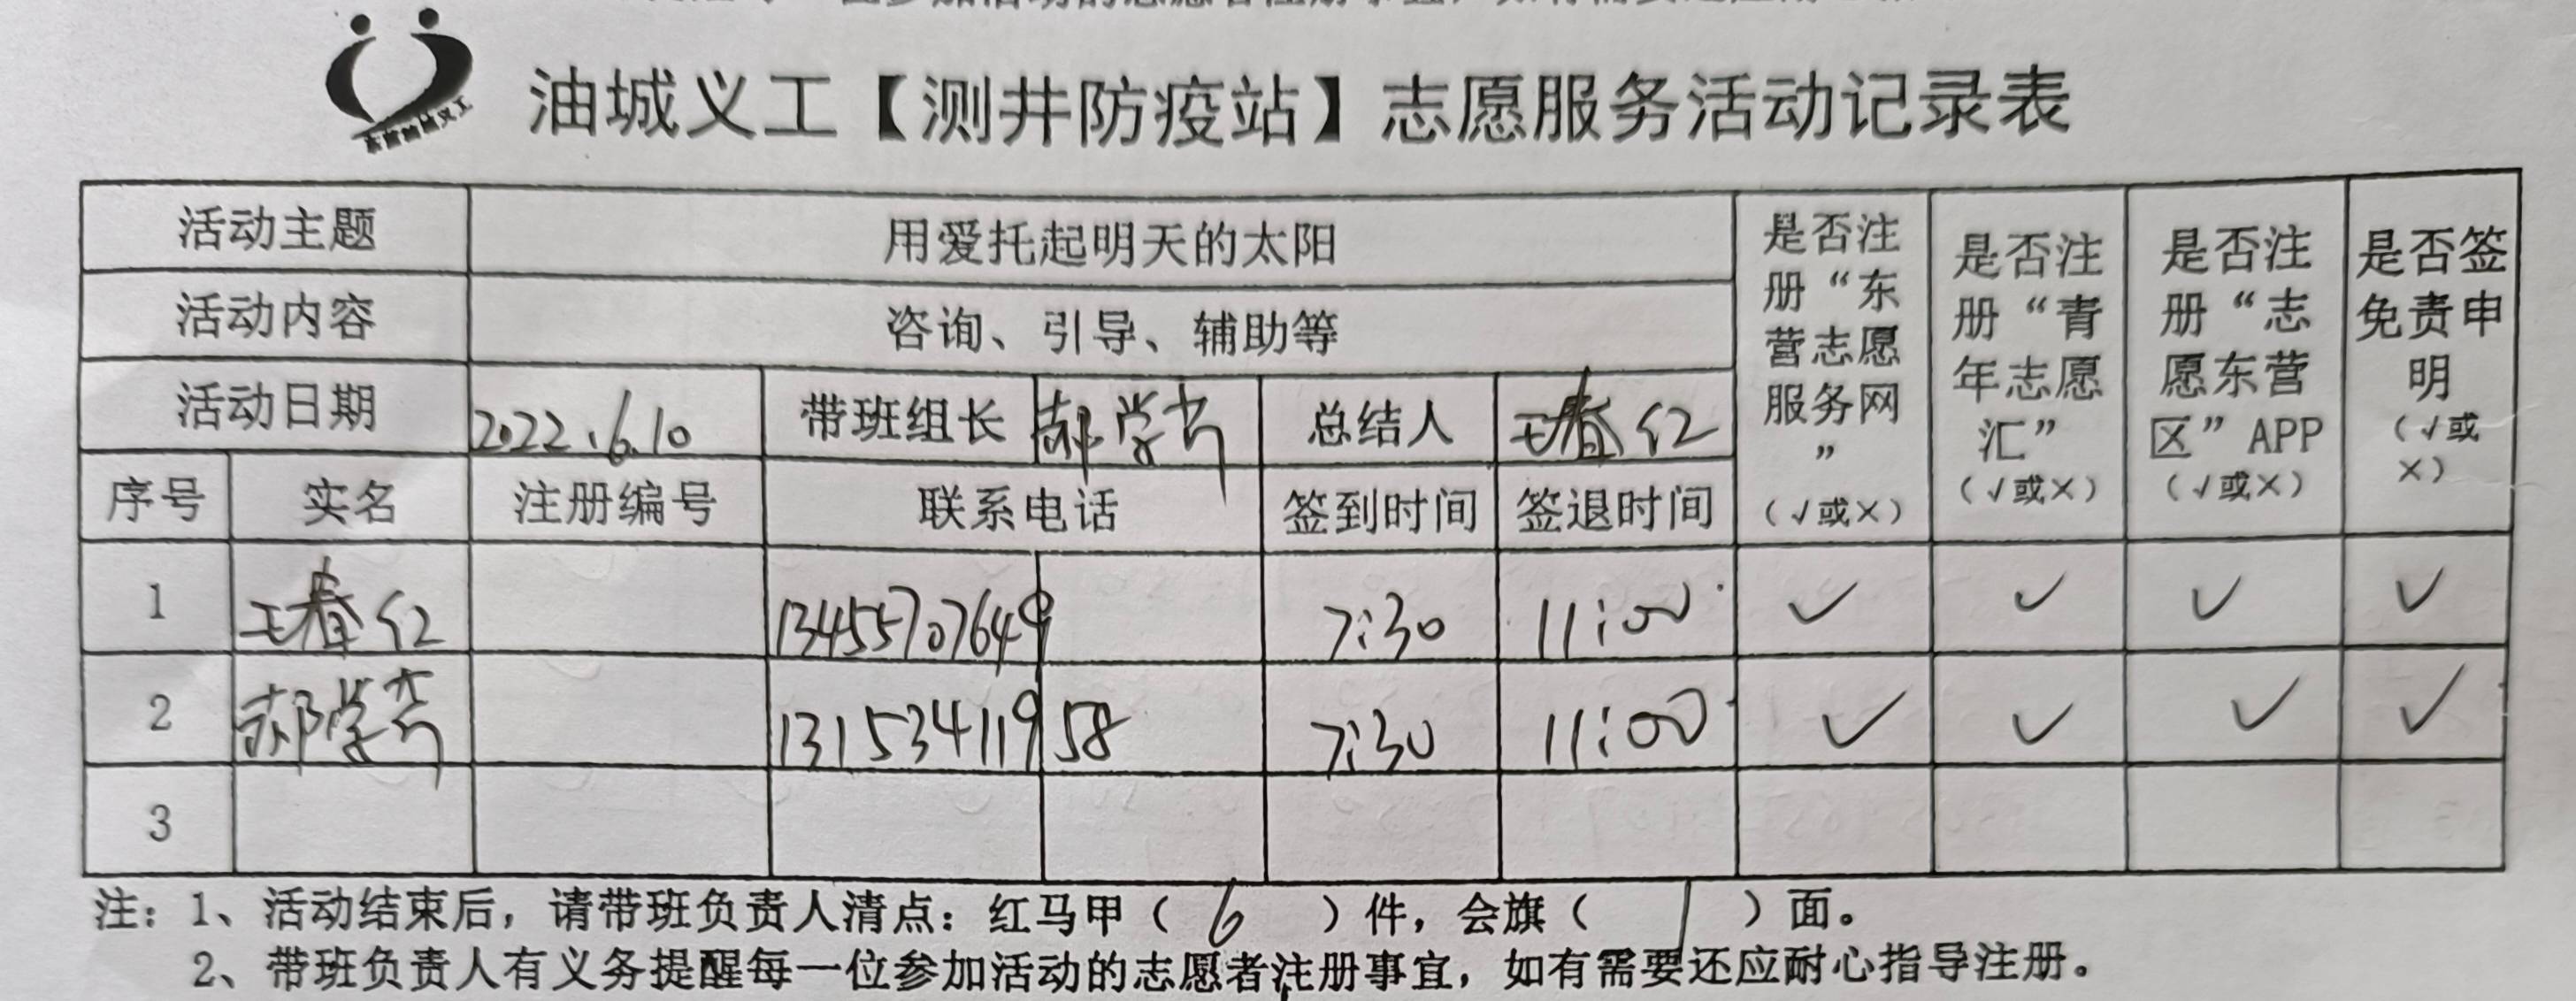 油城义工【测井防疫站】志愿服务活动记录表
活动主题 用爱托起明天的太阳 是否注册“东营志愿服务网”（√或×） 是否注册“青年志愿汇”（√或×） 是否注册“志愿东营区”APP（√或×） 是否签免责申明（√或×）
活动内容 咨询、引导、辅助等
活动日期 2022.6.10 带班组长 郝学芳 总结人 王春红
序号 实名 注册编号 联系电话 签到时间 签退时间
1 王春红 13455707649 7:30 11:00 ✓ ✓ ✓ ✓
2 郝学芳 13153411958 7:30 11:00 ✓ ✓ ✓ ✓
3
注：1、活动结束后，请带班负责人清点：红马甲（6）件，会旗（1）面。
2、带班负责人有义务提醒每一位参加活动的志愿者注册事宜，如有需要还应耐心指导注册。